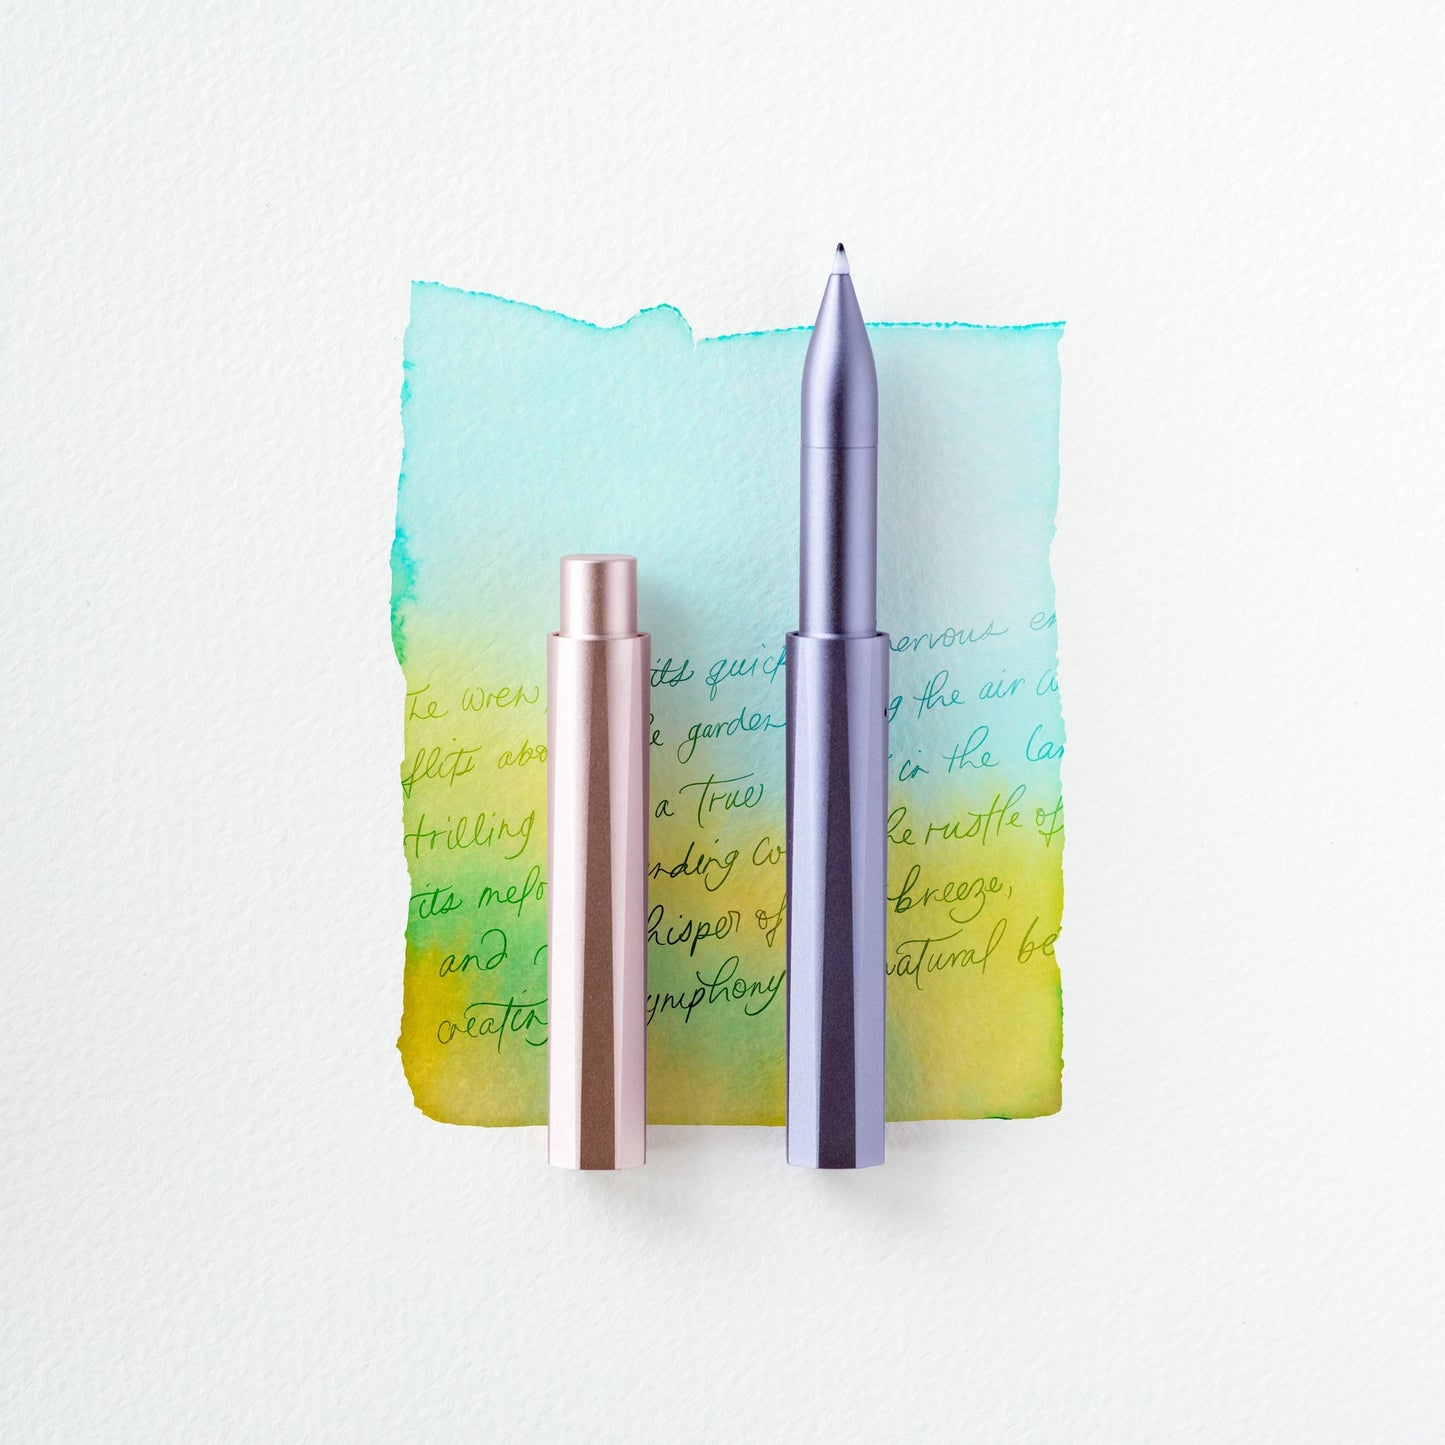 The wren, its quick nervous en
flits abo he garden g the air w
trilling a true in the lan
its melo nding co he rustle of
and hisper of breeze,
creating ymphony natural be